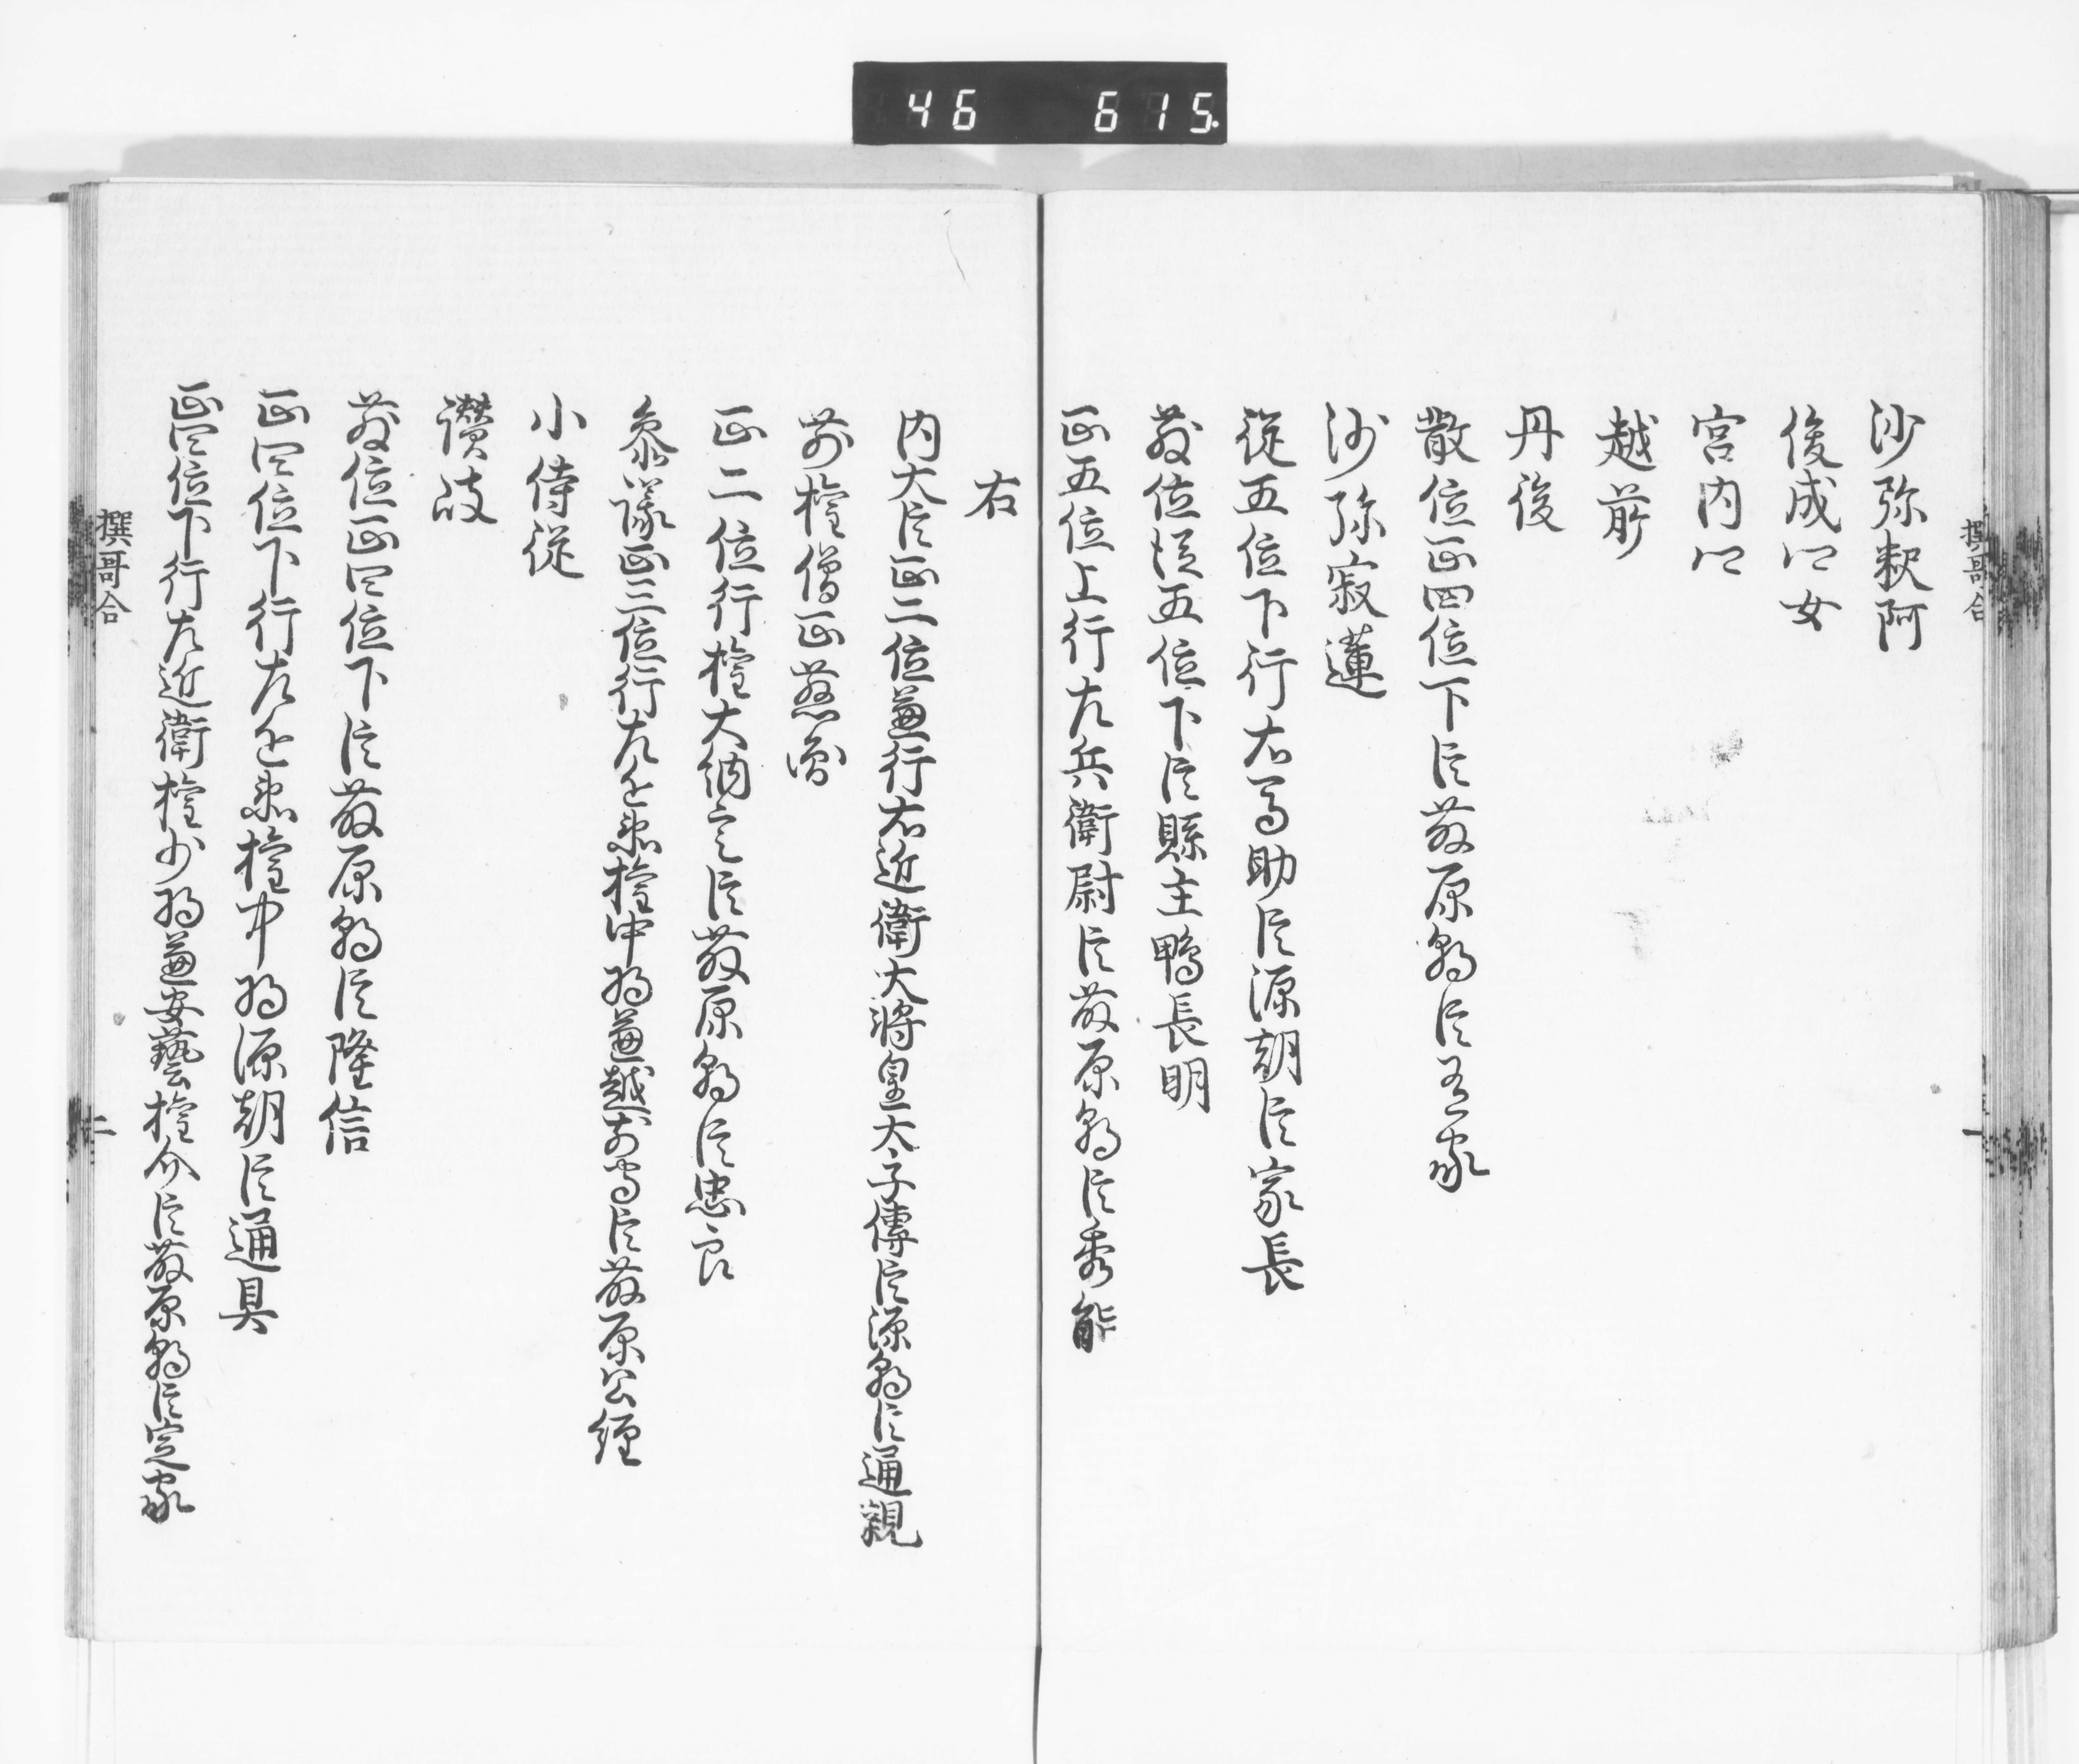 46 615
撰哥合
沙弥釈阿
俊成卿女
宮内卿
越前
丹後
散位正四位下臣藤原朝臣有家
沙弥寂蓮
從五位下行右馬助臣源朝臣家長
散位從五位下臣縣主鴨長明
正五位上行左兵衛尉臣藤原朝臣秀能
一
右
内大臣正二位兼行右近衛大将皇太子傅臣源朝臣通親
前権僧正慈円
正二位行権大納言臣藤原朝臣忠良
参議正三位行左近衛権中将兼越前守臣藤原公経
小侍従
讃岐
散位正四位下臣藤原朝臣隆信
正四位下行左近衛権中将源朝臣通具
正四位下行左近衛権少将兼安藝権介臣藤原朝臣定家
撰哥合
二